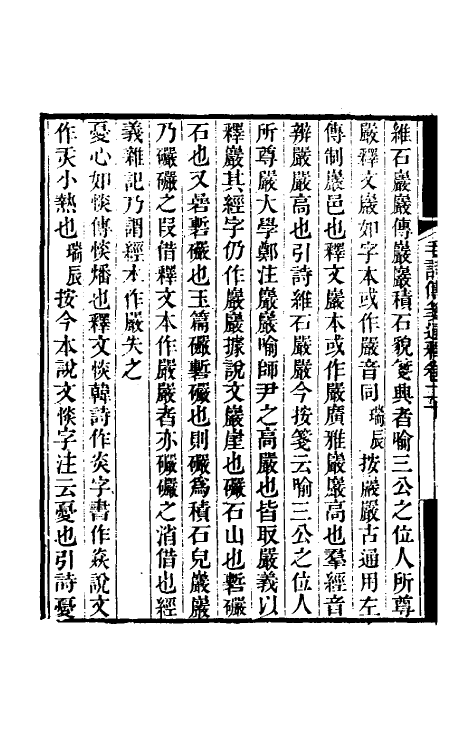 毛詩傳箋通釋卷二十
維石巖巖傳巖巖積石貌箋興者喻三公之位人所尊
嚴釋文巖如字本或作嚴音同瑞辰按巖嚴古通用左
傳制巖邑也釋文巖本或作嚴廣雅巖巖高也羣經音
辨嚴嚴高也引詩維石嚴嚴今按箋云喻三公之位人
所尊嚴大學鄭注嚴嚴喻師尹之高嚴也皆取嚴義以
釋巖其經字仍作嚴嚴據說文巖崖也礹石山也暫礹
石也又碞暫礹也玉篇礹暫礹也則礹爲積石皃巖巖
乃礹礹之叚借釋文本作嚴嚴者亦礹礹之消借也經
義雜記乃謂經本作嚴失之
憂心如惔傳惔燔也釋文惔韓詩作炎字書作焱說文
作𤆎小熱也瑞辰按今本說文惔字注云憂也引詩憂